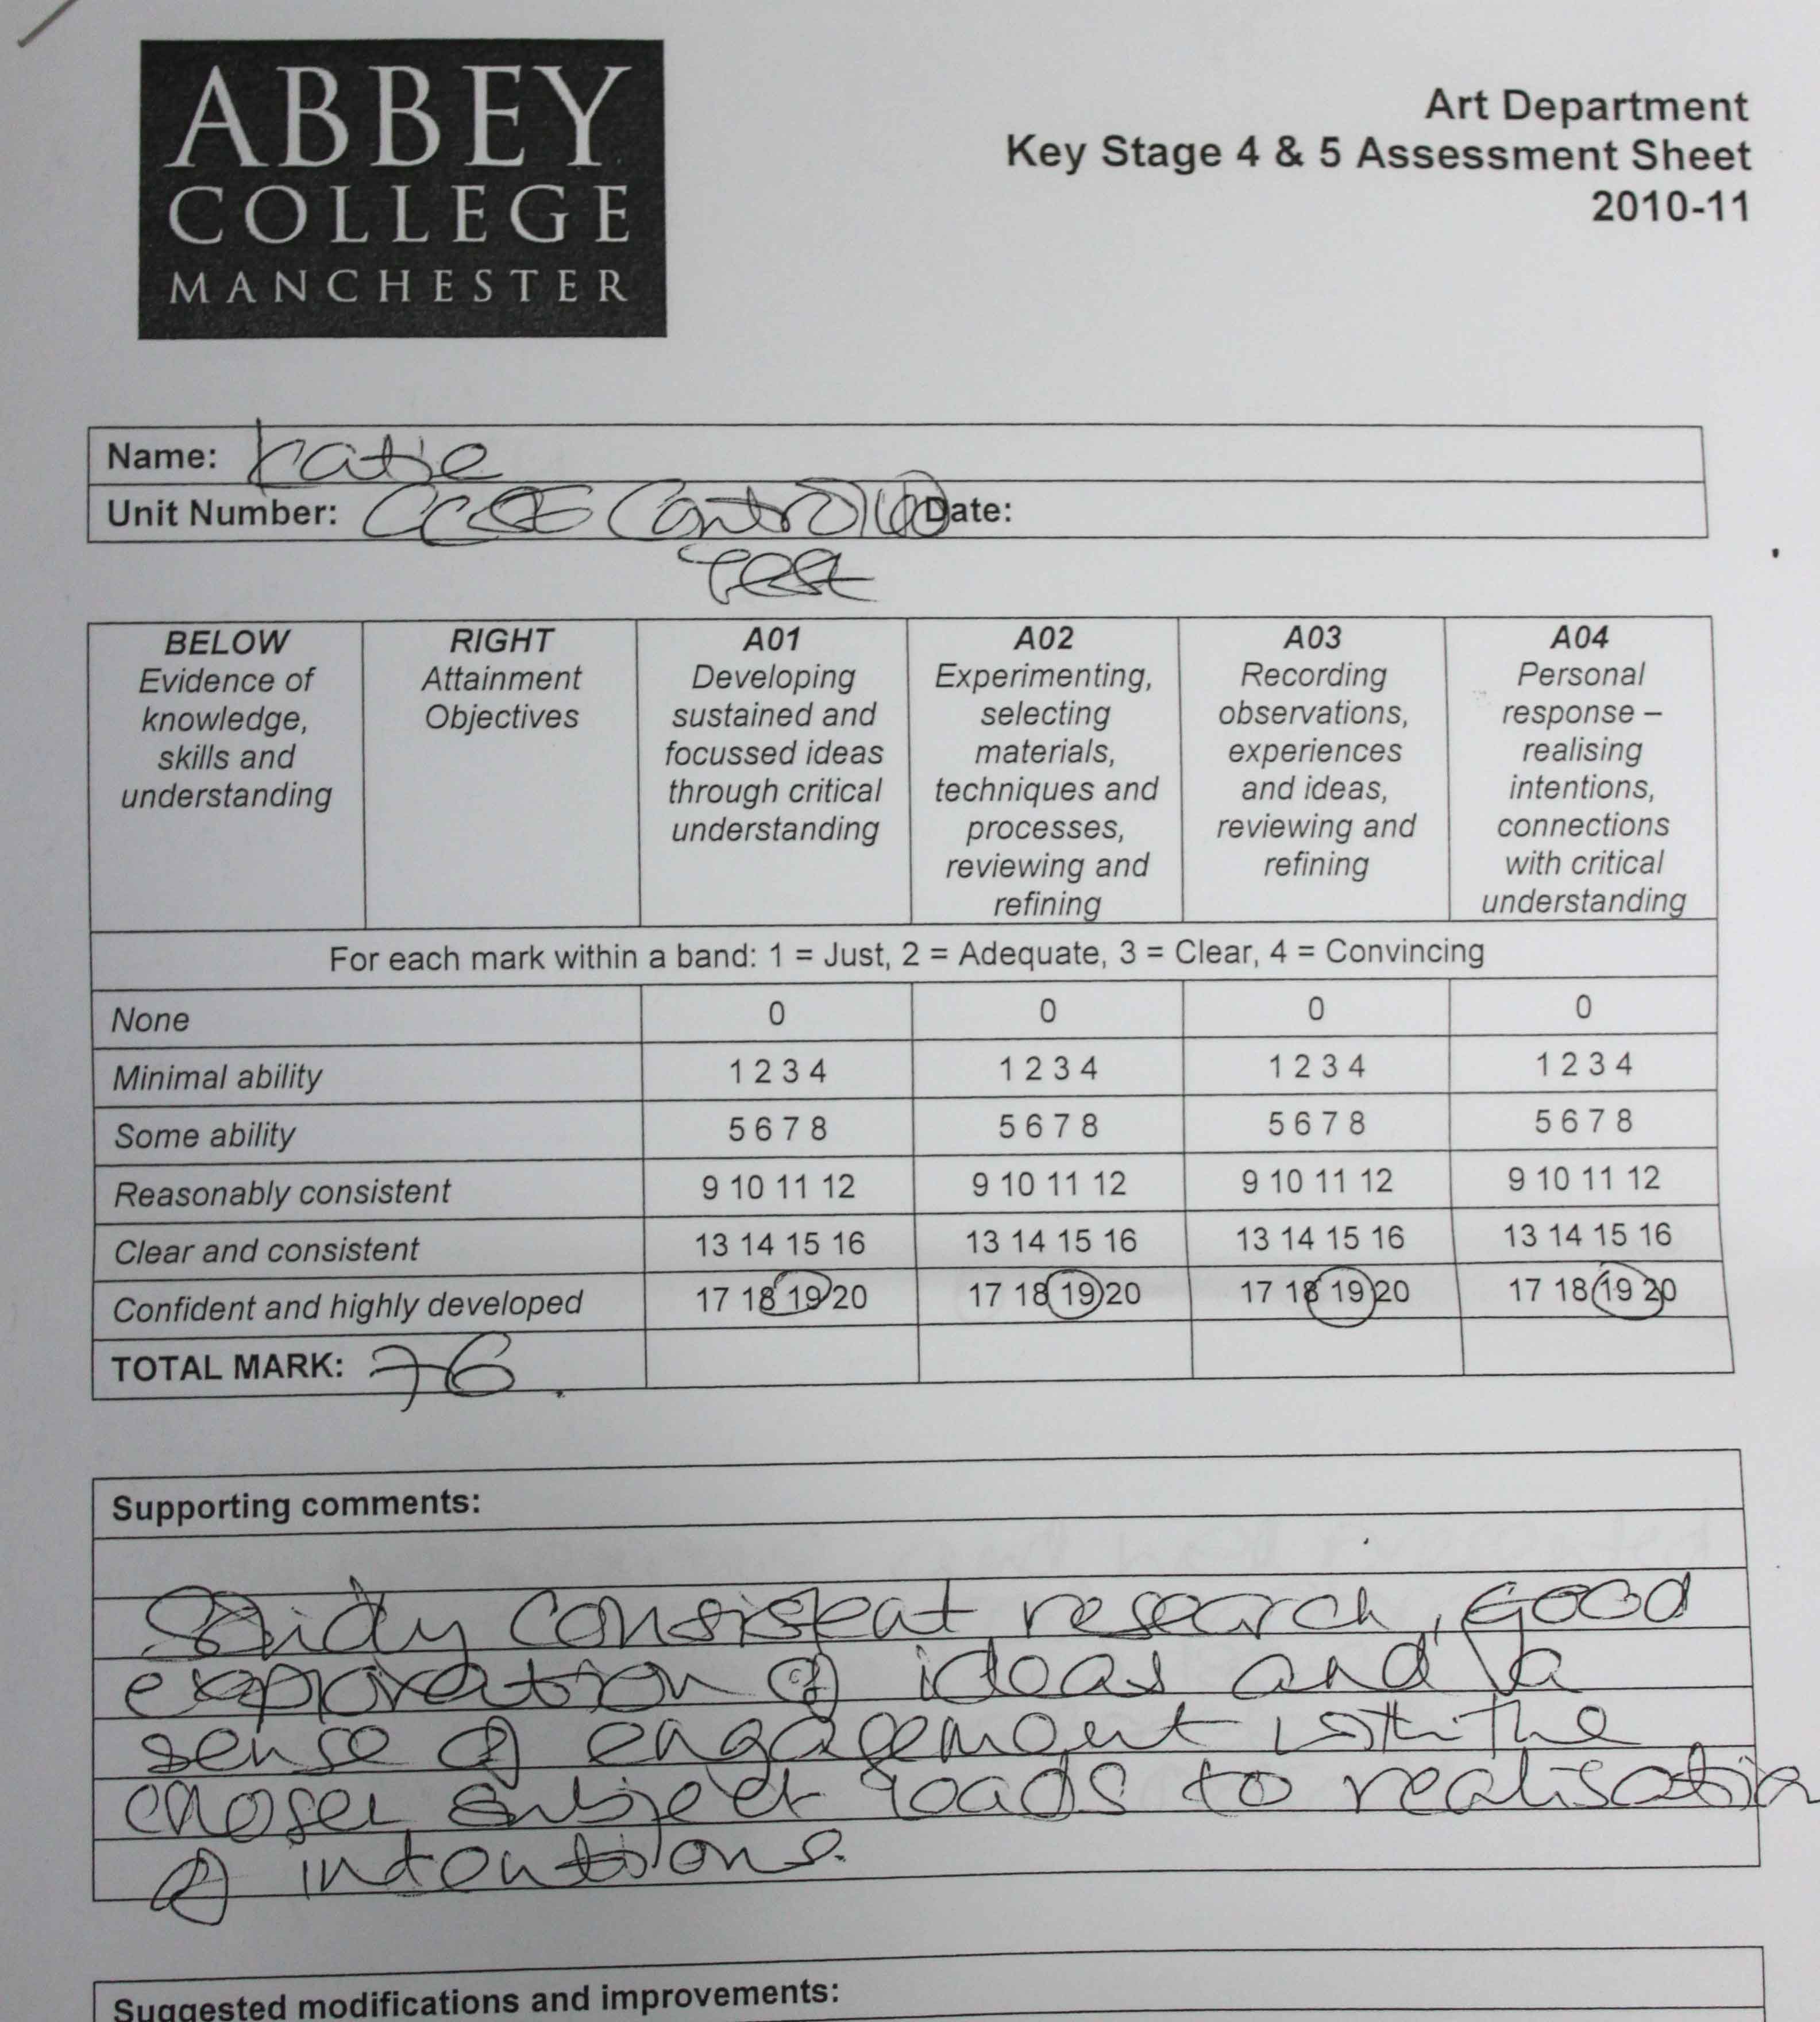 ABBEY
COLLEGE
MANCHESTER
Art Department
Key Stage 4 & 5 Assessment Sheet
2010-11
Name: Katie
Unit Number: GCSE Controlled Date:
Test
BELOW
Evidence of
knowledge,
skills and
understanding
RIGHT
Attainment
Objectives
A01
Developing
sustained and
focussed ideas
through critical
understanding
A02
Experimenting,
selecting
materials,
techniques and
processes,
reviewing and
refining
A03
Recording
observations,
experiences
and ideas,
reviewing and
refining
A04
Personal
response –
realising
intentions,
connections
with critical
understanding
For each mark within a band: 1 = Just, 2 = Adequate, 3 = Clear, 4 = Convincing
None 0 0 0 0
Minimal ability 1 2 3 4 1 2 3 4 1 2 3 4 1 2 3 4
Some ability 5 6 7 8 5 6 7 8 5 6 7 8 5 6 7 8
Reasonably consistent 9 10 11 12 9 10 11 12 9 10 11 12 9 10 11 12
Clear and consistent 13 14 15 16 13 14 15 16 13 14 15 16 13 14 15 16
Confident and highly developed 17 18 19 20 17 18 19 20 17 18 19 20 17 18 19 20
TOTAL MARK: 76.
Supporting comments:
consistent research, Good
exploration of ideas and a
sense of engagement with the
chosen subject leads to realisation
of intentions.
Suggested modifications and improvements: